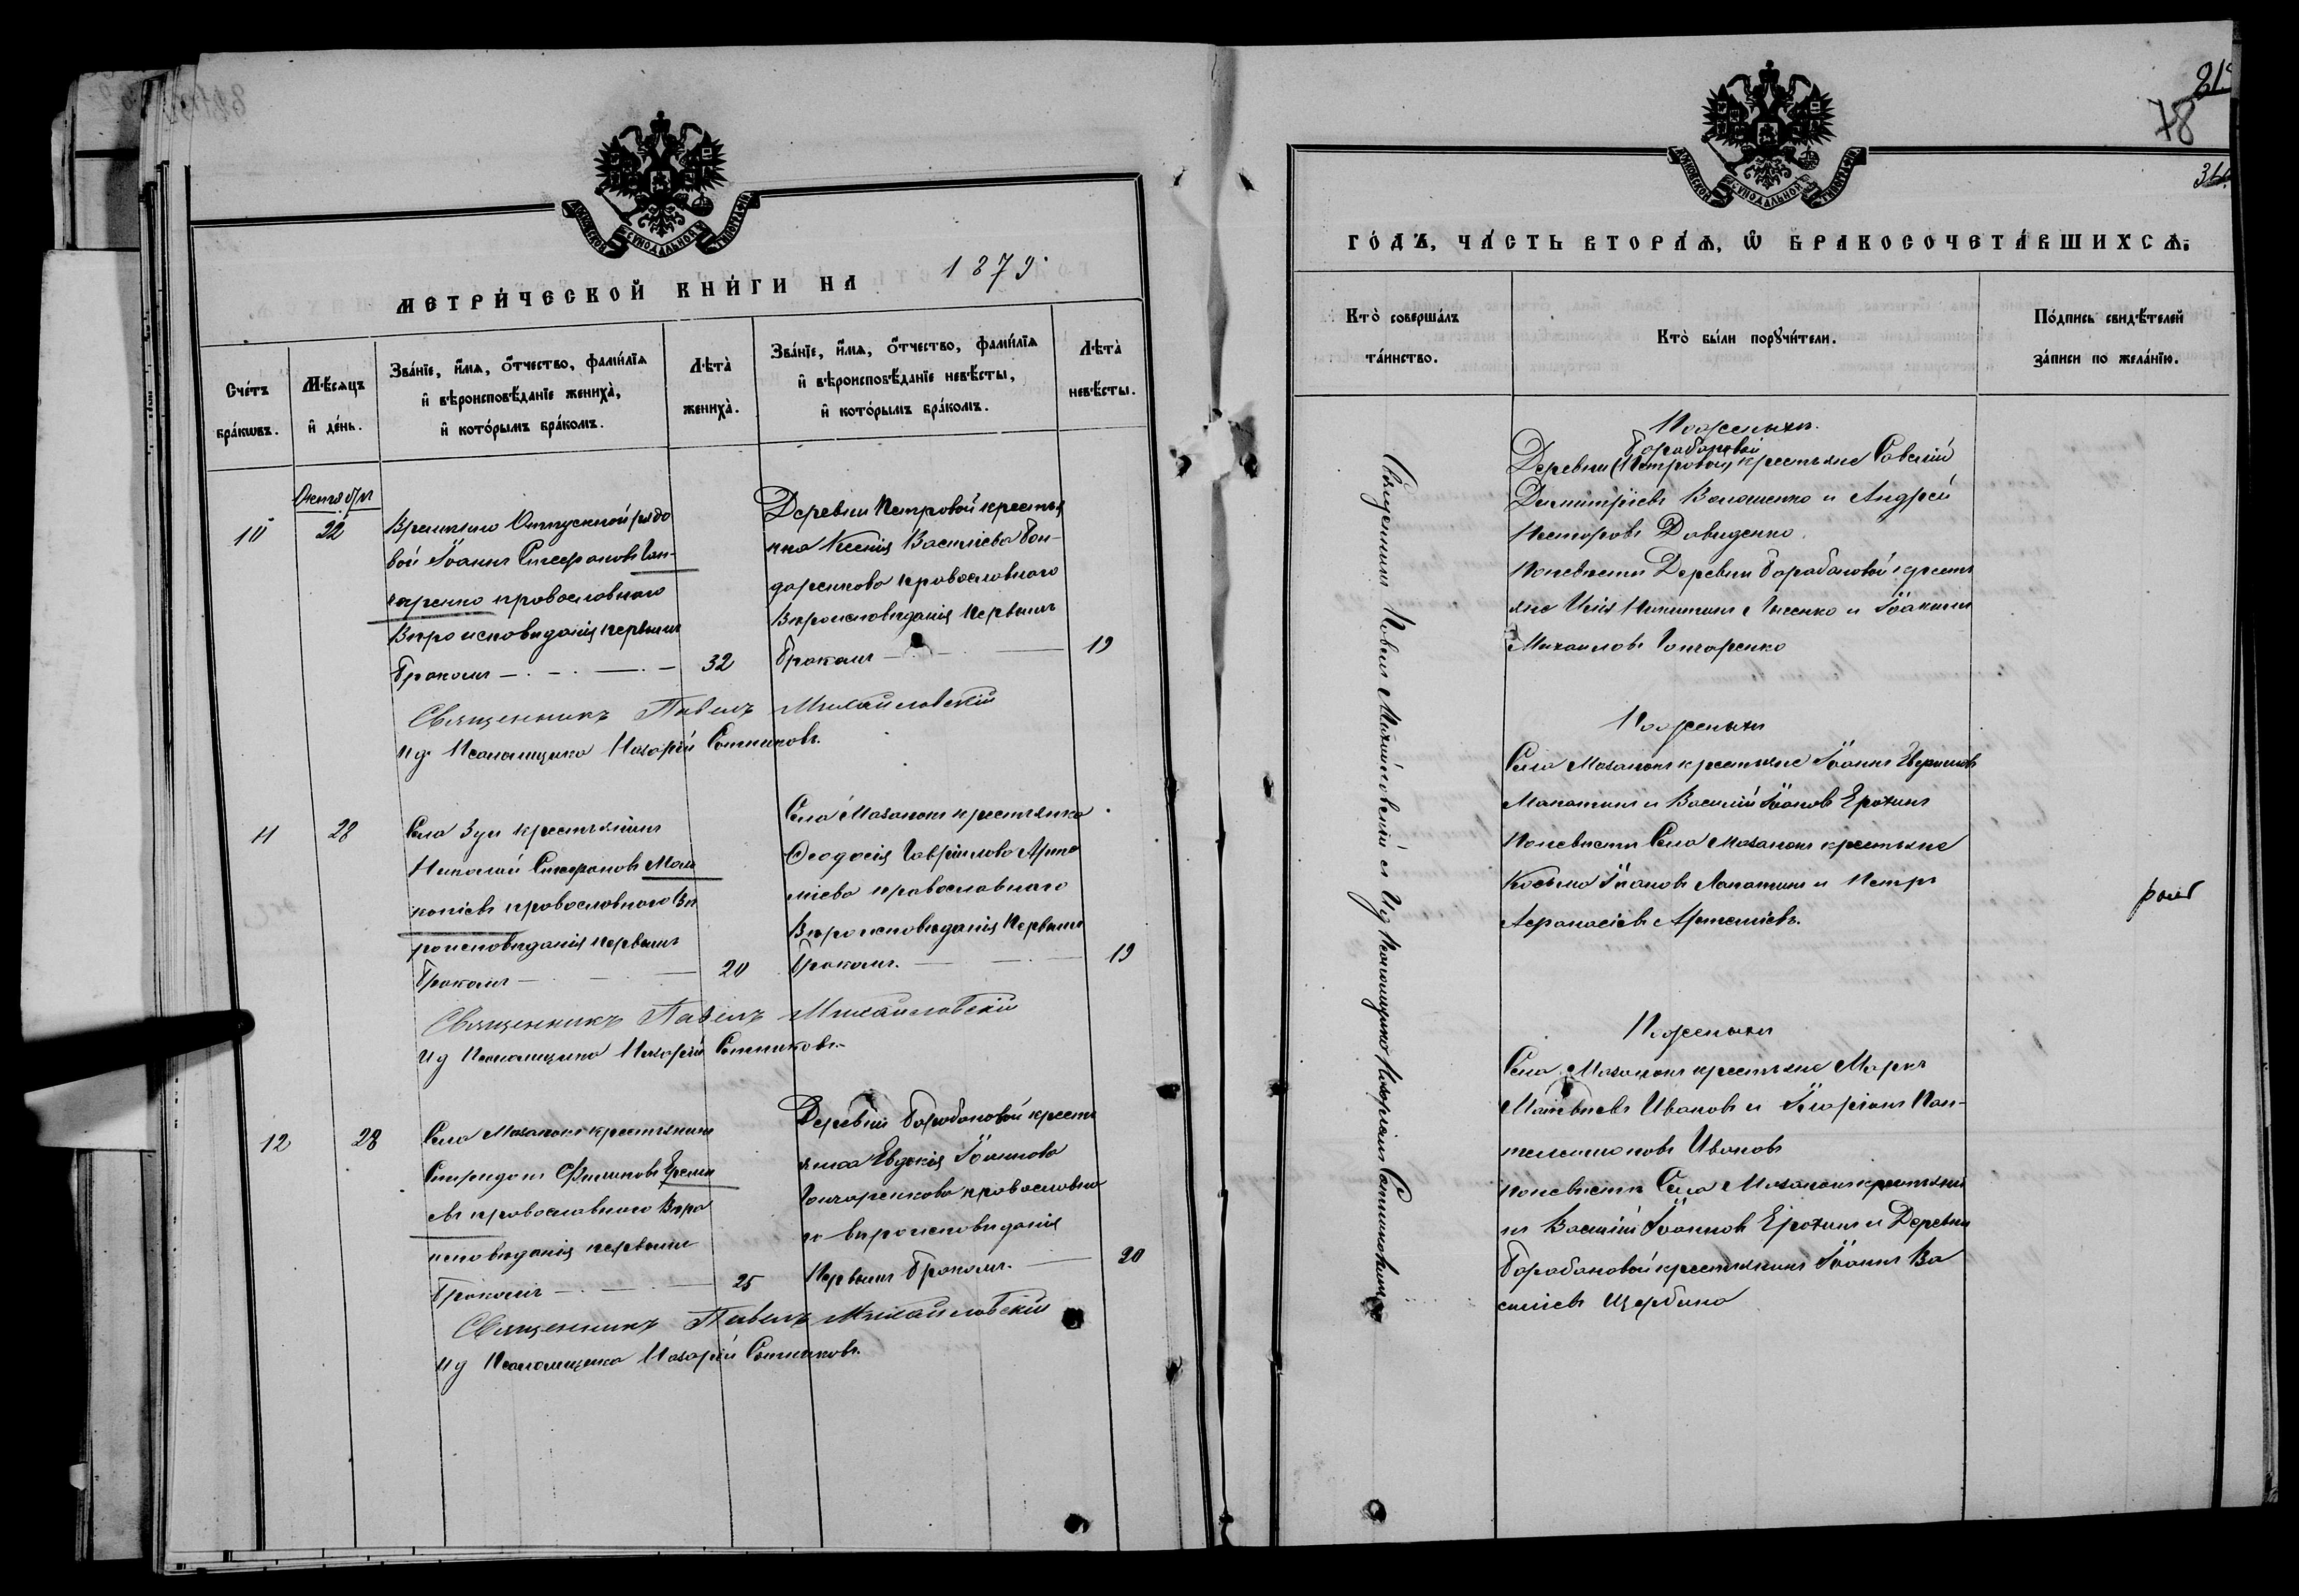 МОСКОВСКОЙ СѴНОДАЛЬНОЙ ТИПОГРАФІИ
МЕТРИ́ЧЕСКОЙ КНИ́ГИ НА 1879
Сче́тъ бра́кѡвъ.
Мѣ́сяцъ и҆ де́нь.
Зва́нїе, и҆́мѧ, ѻ҆́тчество, фами́лїѧ
и҆ вѣроисповѣ́данїе жениха̀,
и҆ кото́рымъ бра́комъ.
Лѣта̀ жениха̀.
Зва́нїе, и҆́мѧ, ѻ҆́тчество, фами́лїѧ
и҆ вѣроисповѣ́данїе невѣ́сты,
и҆ кото́рымъ бра́комъ.
Лѣта̀ невѣ́сты.
Октября
10
22
Временно Отпускной рядо
вой Іоаннъ Стефановъ Гон-
чаренко православнаго
Вѣроисповѣданія первымъ
бракомъ
32
Деревни Петровой крестья
нка Ксенія Васильева Бон-
даренкова православнаго
Вѣроисповѣданія Первымъ
бракомъ
19
Священникъ Павелъ Михайловскій
И д Псаломщика Назарій Сотниковъ.
11
28
Села Зуи крестьянинъ
Николай Стефановъ
православнаго Вѣ
роисповѣданія первымъ
бракомъ
20
Села Мазанокъ крестьянка
Ѳеодосія Гавріилова Арте
міева православнаго
Вѣроисповѣданія Первымъ
бракомъ.
19
Священникъ Павелъ Михайловскій
И д Псаломщика Назарій Сотниковъ
12
28
Села Мазанокъ крестьянинъ
Спиридонъ Филиповъ Ереме
евъ православнаго Вѣро
исповѣданія первымъ
бракомъ
25
Деревни Барабановой кресть
янка Евдокія Іоаннова
Гончаренкова православна
го вѣроисповѣданія
Первымъ бракомъ.
20
Священникъ Павелъ Михайловскій
И д Псаломщика Назарій Сотниковъ.
81
78
МОСКОВСКОЙ СѴНОДАЛЬНОЙ ТИПОГРАФІИ
ГО́ДЪ, ЧА́СТЬ ВТОРА́Ѧ, Ѡ҆ БРАКОСОЧЕТА́ВШИХСѦ:
Кто̀ соверша́лъ та́инство.
Кто̀ бы́ли порꙋчи́тели.
По́дпись свидѣ́телей за́писи по жела́нїю.
Священникъ Павелъ Михайловскій съ Ид Псаломщика Назаріемъ Сотниковымъ
По женихѣ.
Барабановой
Деревни (Петровой) крестьяне Савелій
Димитріевъ Волошенко и Андрей
Несторовъ Давиденко.
По невѣсти Деревни Барабановой кресть
яне Илія Никитинъ Лысенко и Іоакимъ
Михаиловъ Гончаренко
По женихѣ
Села Мазанокъ крестьяне Іоаннъ
и Василій Іоановъ Ерохинъ
По невѣсти Села Мазанокъ крестьяне
Косьма Іоановъ Лапатинъ и Петръ
Афанасіевъ Артеміевъ.
По женихѣ
Села Мазанокъ крестьяне Маркъ
Матвѣевъ Ивановъ и Иларіонъ Пан-
телеимоновъ Ивановъ
По невѣсти Села Мазанокъ крестьяни
нъ Василій Іоанновъ Ерохинъ и Деревни
Барабановой крестьянинъ Іоаннъ Ва
силіевъ Щербина